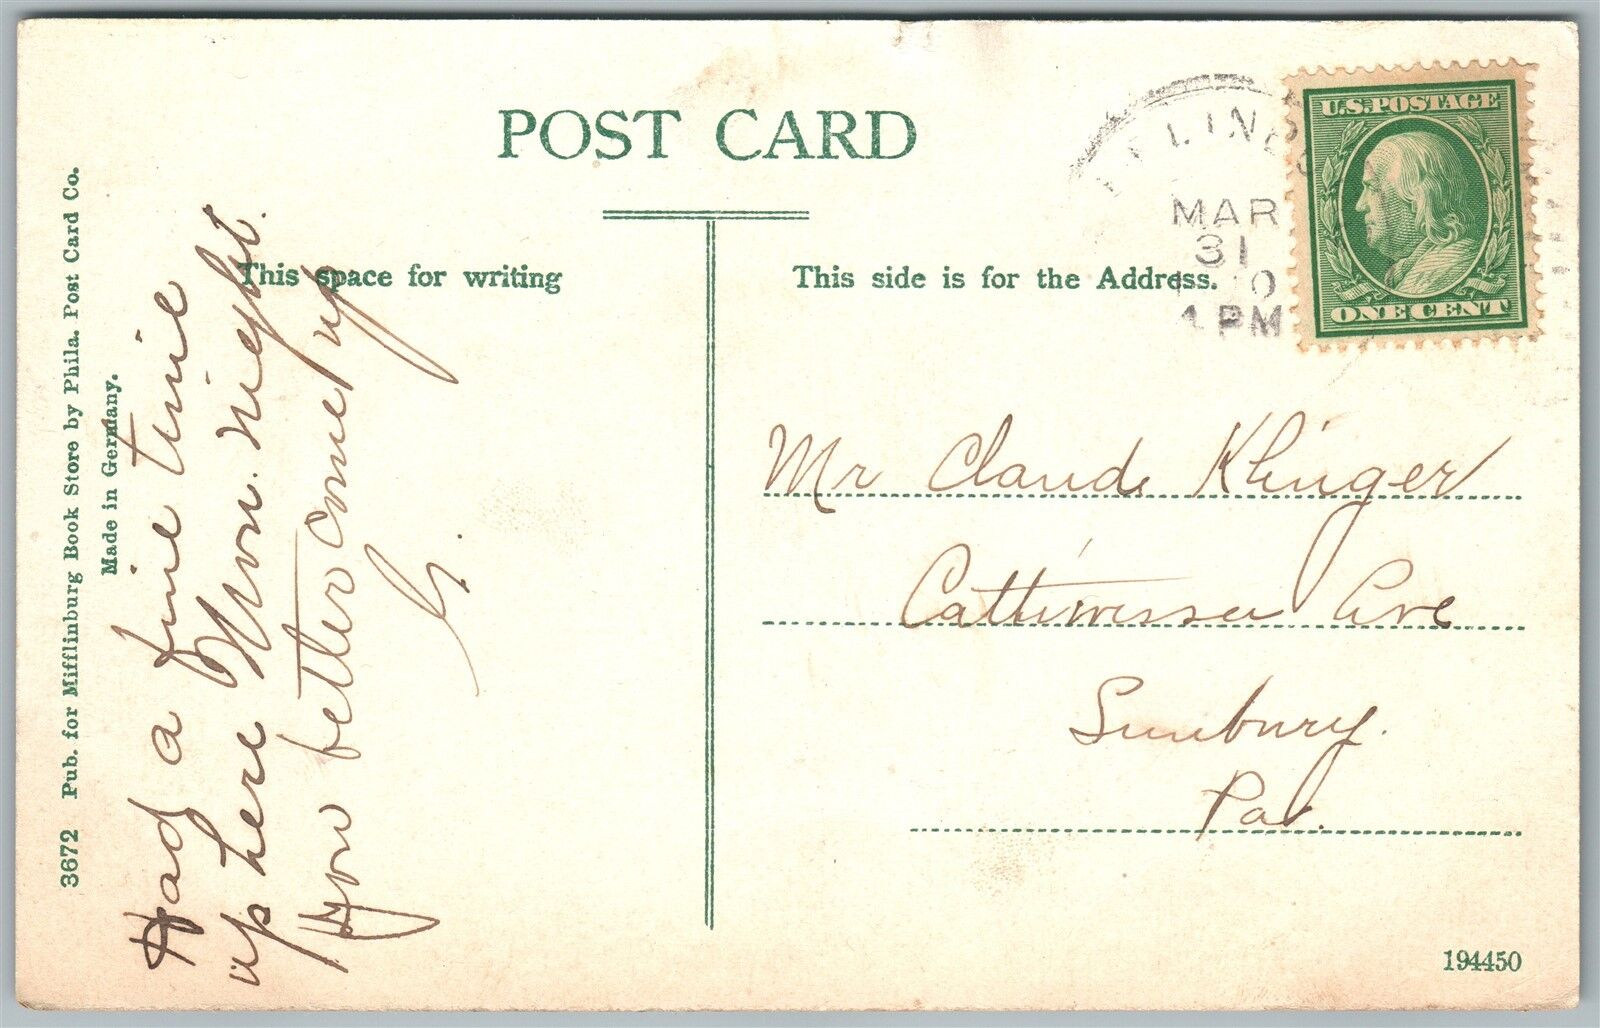 POST CARD
This space for writing
This side is for the Address.
3672 Pub. for Mifflinburg Book Store by Phila. Post Card Co.
Made in Germany.
Had a fine time
up here Mon. night.
you better come up
G.
MAR
31
PM
U.S. POSTAGE
ONE CENT
Mr Claude Klinger
Cattiwissa Ave
Sunbury.
Pa.
194450